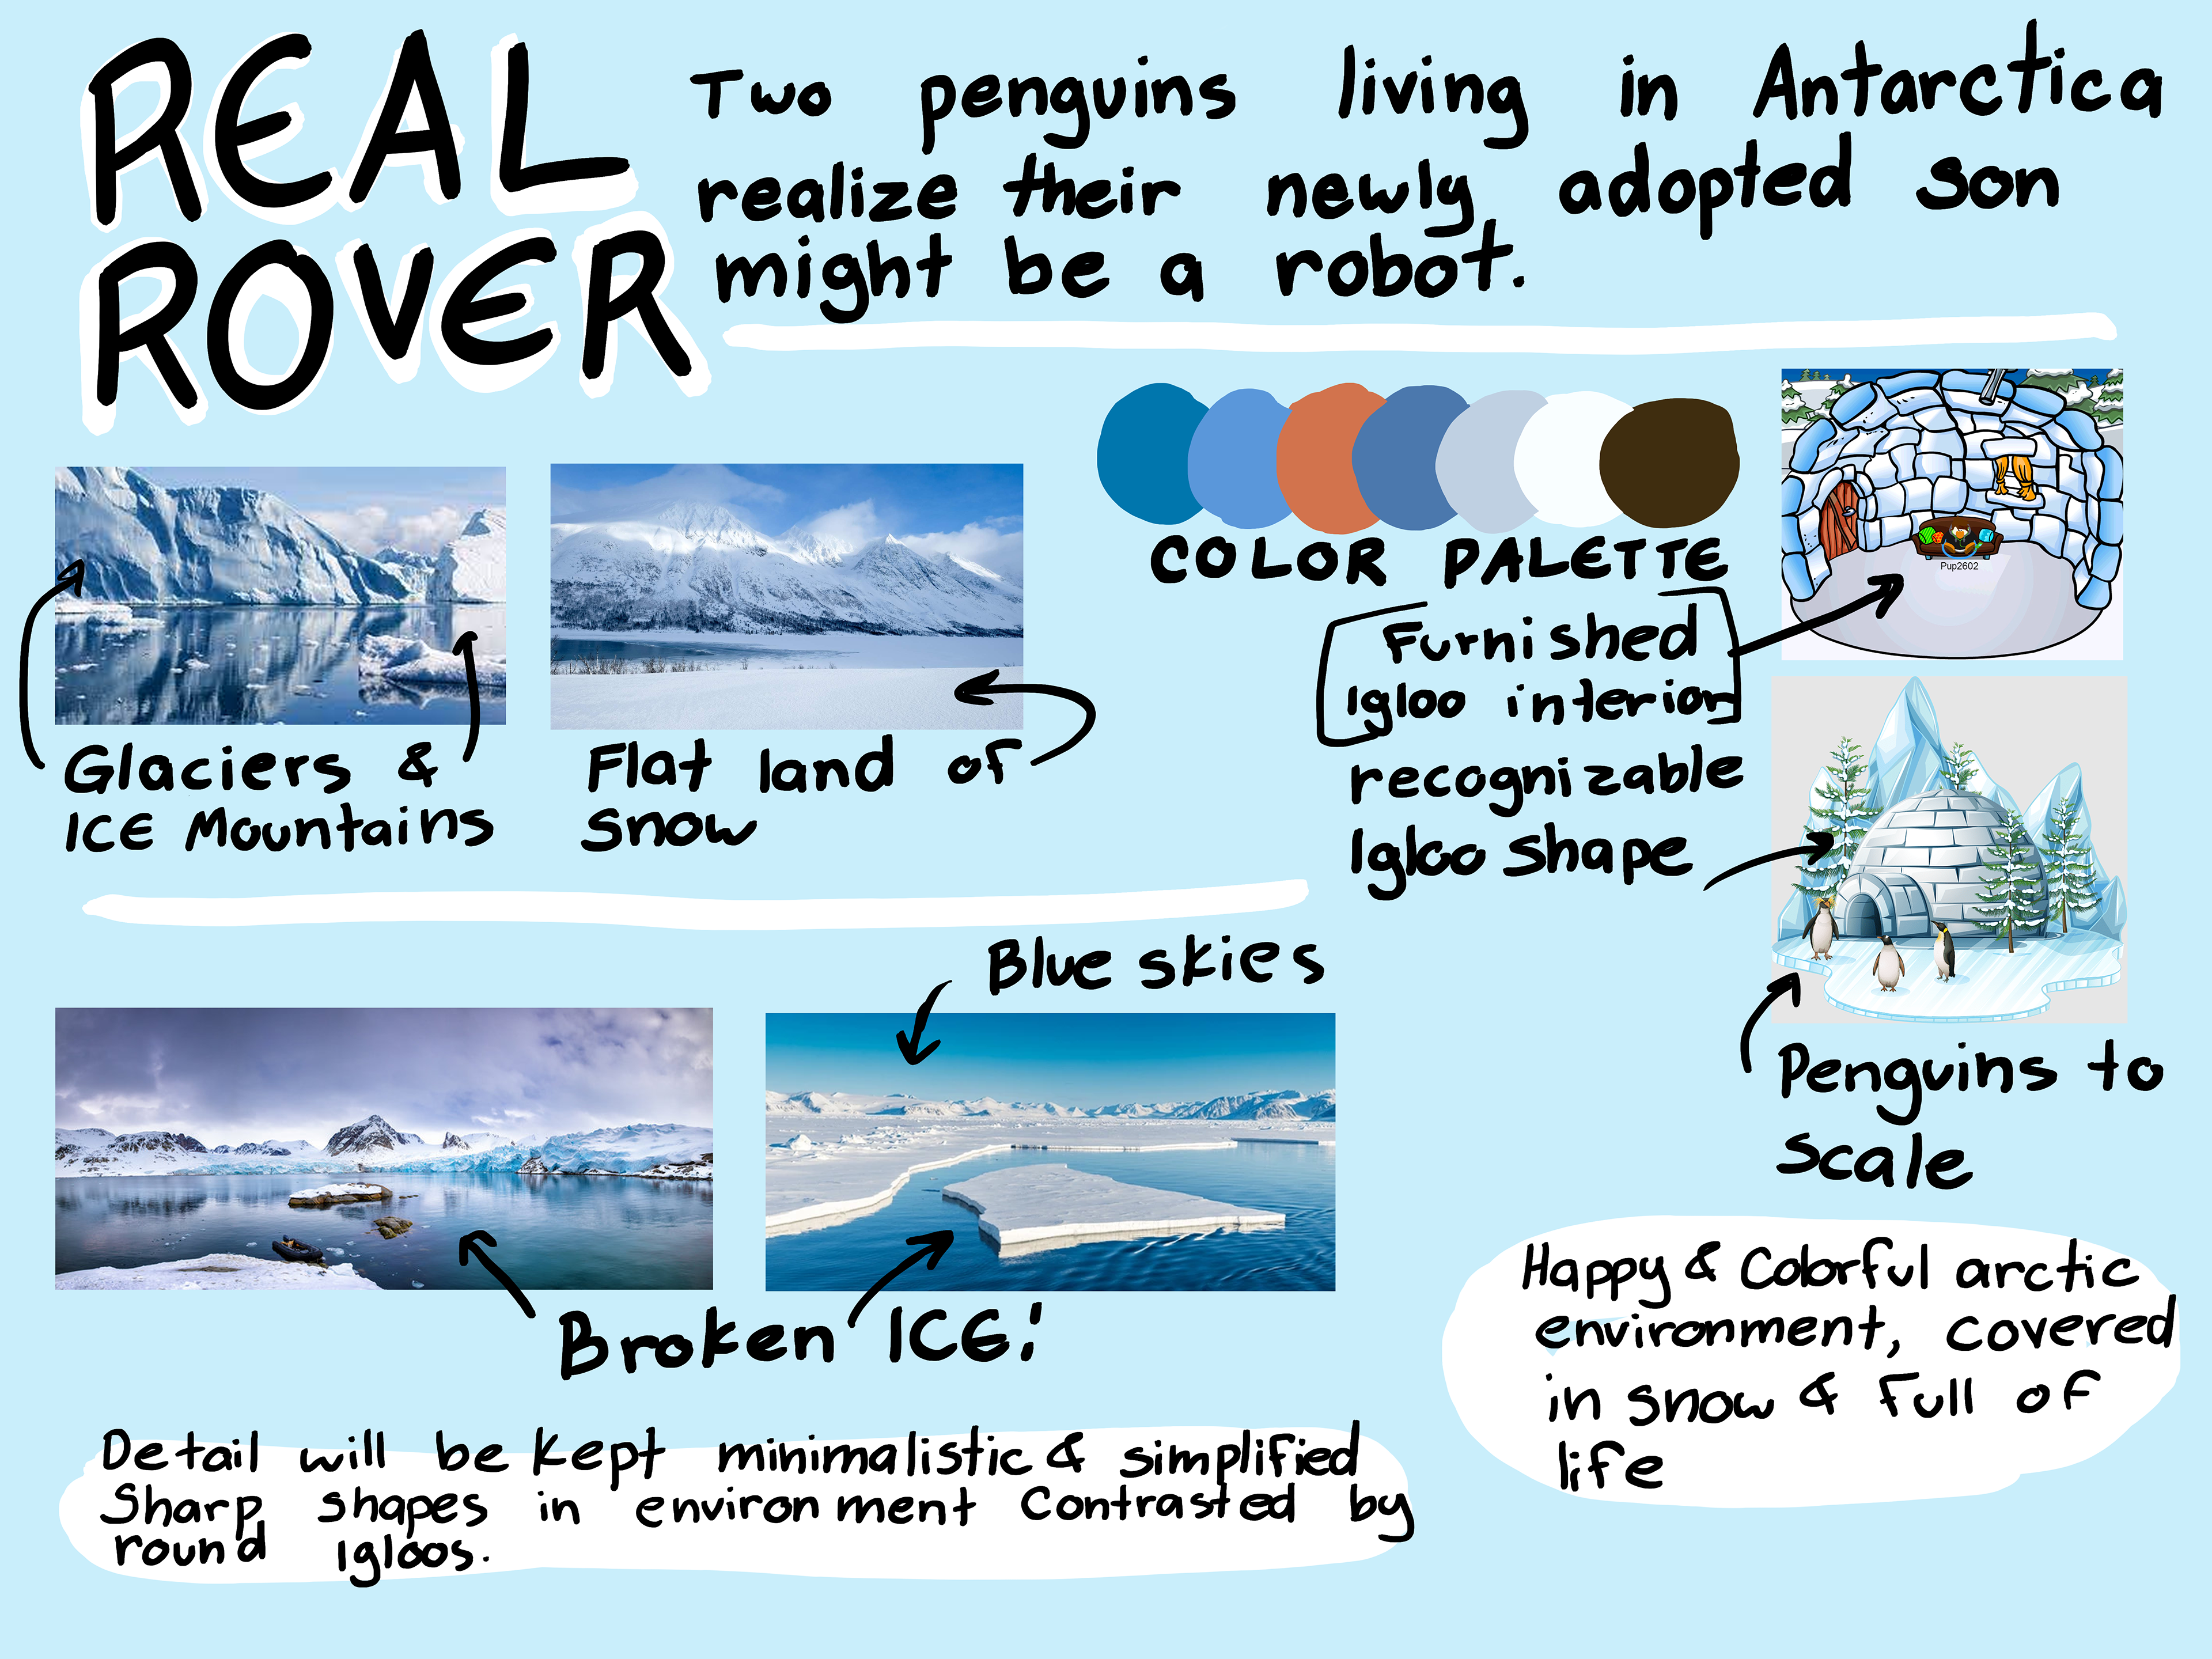 REAL
ROVER
Two penguins living in Antarctica
realize their newly adopted son
might be a robot.
COLOR PALETTE
Furnished
Igloo interior
Pup2602
recognizable
Igloo shape
Glaciers &
ICE Mountains
Flat land of
snow
Blue skies
Penguins to
scale
Broken ICE!
Happy & Colorful arctic
environment, covered
in snow & full of
life
Detail will be kept minimalistic & simplified
Sharp shapes in environment Contrasted by
round Igloos.